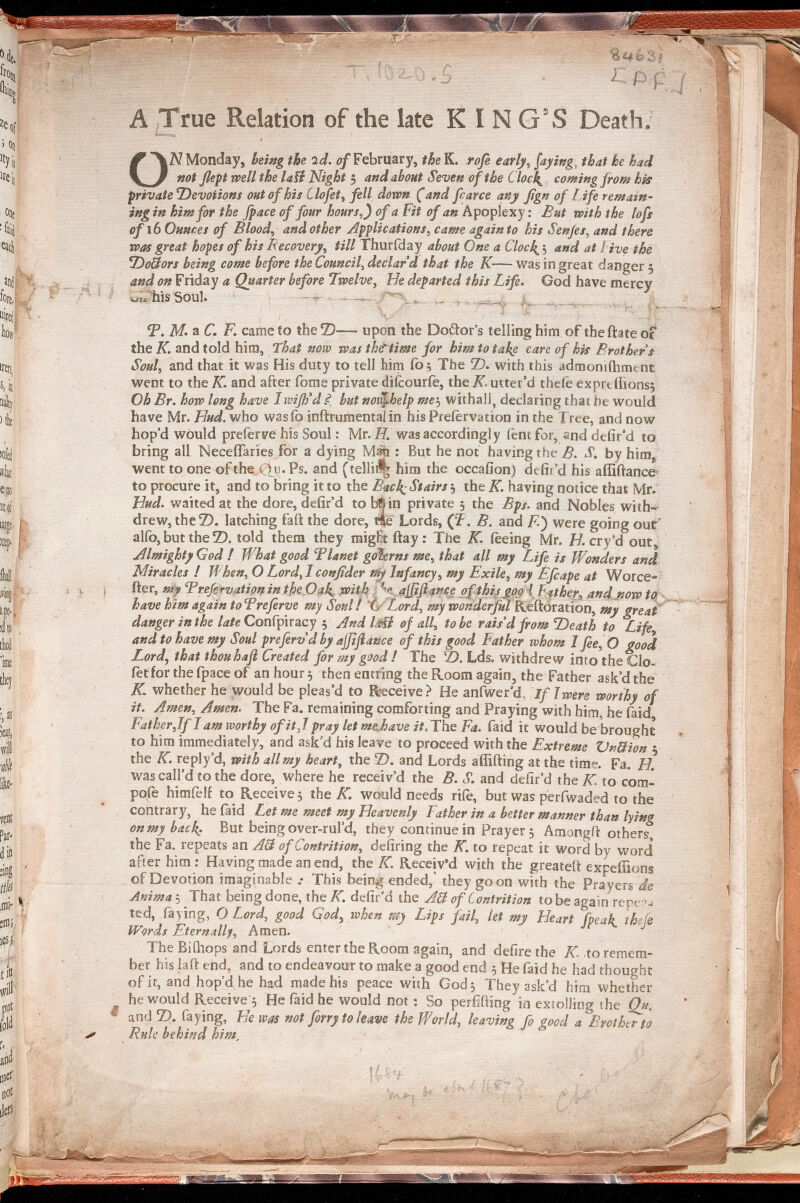 84631
T. 1020.5
[P.F.]
A True Relation of the late KING'S Death.
ON Monday, being the 2d. of February, the K. rose early, saying, that he had
not slept well the last Night; and about Seven of the Clock coming from his
private Devotions out of his Closet, fell down (and scarce any sign of Life remain-
ing in him for the space of four hours,) of a Fit of an Apoplexy: But with the loss
of 16 Ounces of Blood, and other Applications, came again to his Senses, and there
was great hopes of his Recovery, till Thursday about One a Clock; and at Five the
Doctors being come before the Council, declar'd that the K— was in great danger;
and on Friday a Quarter before Twelve, He departed this Life. God have mercy
his Soul.
P. M. a C. F. came to the D— upon the Doctor's telling him of the state of
the K. and told him, That now was the time for him to take care of his Brother's
Soul, and that it was His duty to tell him so; The D. with this admonishment
went to the K. and after some private discourse, the K. utter'd these expressions;
Oh Br. how long have I wish'd? but now help me; withall, declaring that he would
have Mr. Hud. who was so instrumental in his Preservation in the Tree, and now
hop'd would preserve his Soul: Mr. H. was accordingly sent for, and desir'd to
bring all Necessaries for a dying Man: But he not having the B. S. by him,
went to one of the Qu. Ps. and (telling him the occasion) desir'd his assistance
to procure it, and to bring it to the Back-Stairs; the K. having notice that Mr.
Hud. waited at the dore, desir'd to be in private; the Bps. and Nobles with-
drew, the D. latching fast the dore, the Lords, (P. B. and F.) were going out
also, but the D. told them they might stay: The K. seeing Mr. H. cry'd out,
Almighty God! What good Planet governs me, that all my Life is Wonders and
Miracles! When, O Lord, I consider my Infancy, my Exile, my Escape at Worce-
ster, my Preservation in the Oak, with the assistance of this good Father, and now to
have him again to Preserve my Soul! O Lord, my wonderful Restoration, my great
danger in the late Conspiracy; And last of all, to be rais'd from Death to Life,
and to have my Soul preserv'd by assistance of this good Father whom I see, O good
Lord, that thou hast Created for my good! The D. Lds. withdrew into the Clo-
set for the space of an hour; then entring the Room again, the Father ask'd the
K. whether he would be pleas'd to Receive? He answer'd, If I were worthy of
it. Amen, Amen. The Fa. remaining comforting and Praying with him, he said,
Father, If I am worthy of it, I pray let me have it. The Fa. said it would be brought
to him immediately, and ask'd his leave to proceed with the Extreme Unction;
the K. reply'd, with all my heart, the D. and Lords assisting at the time. Fa. H.
was call'd to the dore, where he receiv'd the B. S. and desir'd the K. to com-
pose himself to Receive; the K. would needs rise, but was perswaded to the
contrary, he said Let me meet my Heavenly Father in a better manner than lying
on my back. But being over-rul'd, they continue in Prayer; Amongst others,
the Fa. repeats an Act of Contrition, desiring the K. to repeat it word by word
after him: Having made an end, the K. Receiv'd with the greatest expessions
of Devotion imaginable: This being ended, they go on with the Prayers de
Anima; That being done, the K. desir'd the Act of Contrition to be again repea-
ted, saying, O Lord, good God, when my Lips fail, let my Heart speak these
Words Eternally, Amen.
The Bishops and Lords enter the Room again, and desire the K. to remem-
ber his last end, and to endeavour to make a good end; He said he had thought
of it, and hop'd he had made his peace with God; They ask'd him whether
he would Receive; He said he would not: So persisting in extolling the Qu.
and D. saying, He was not sorry to leave the World, leaving so good a Brother to
Rule behind him.
1684